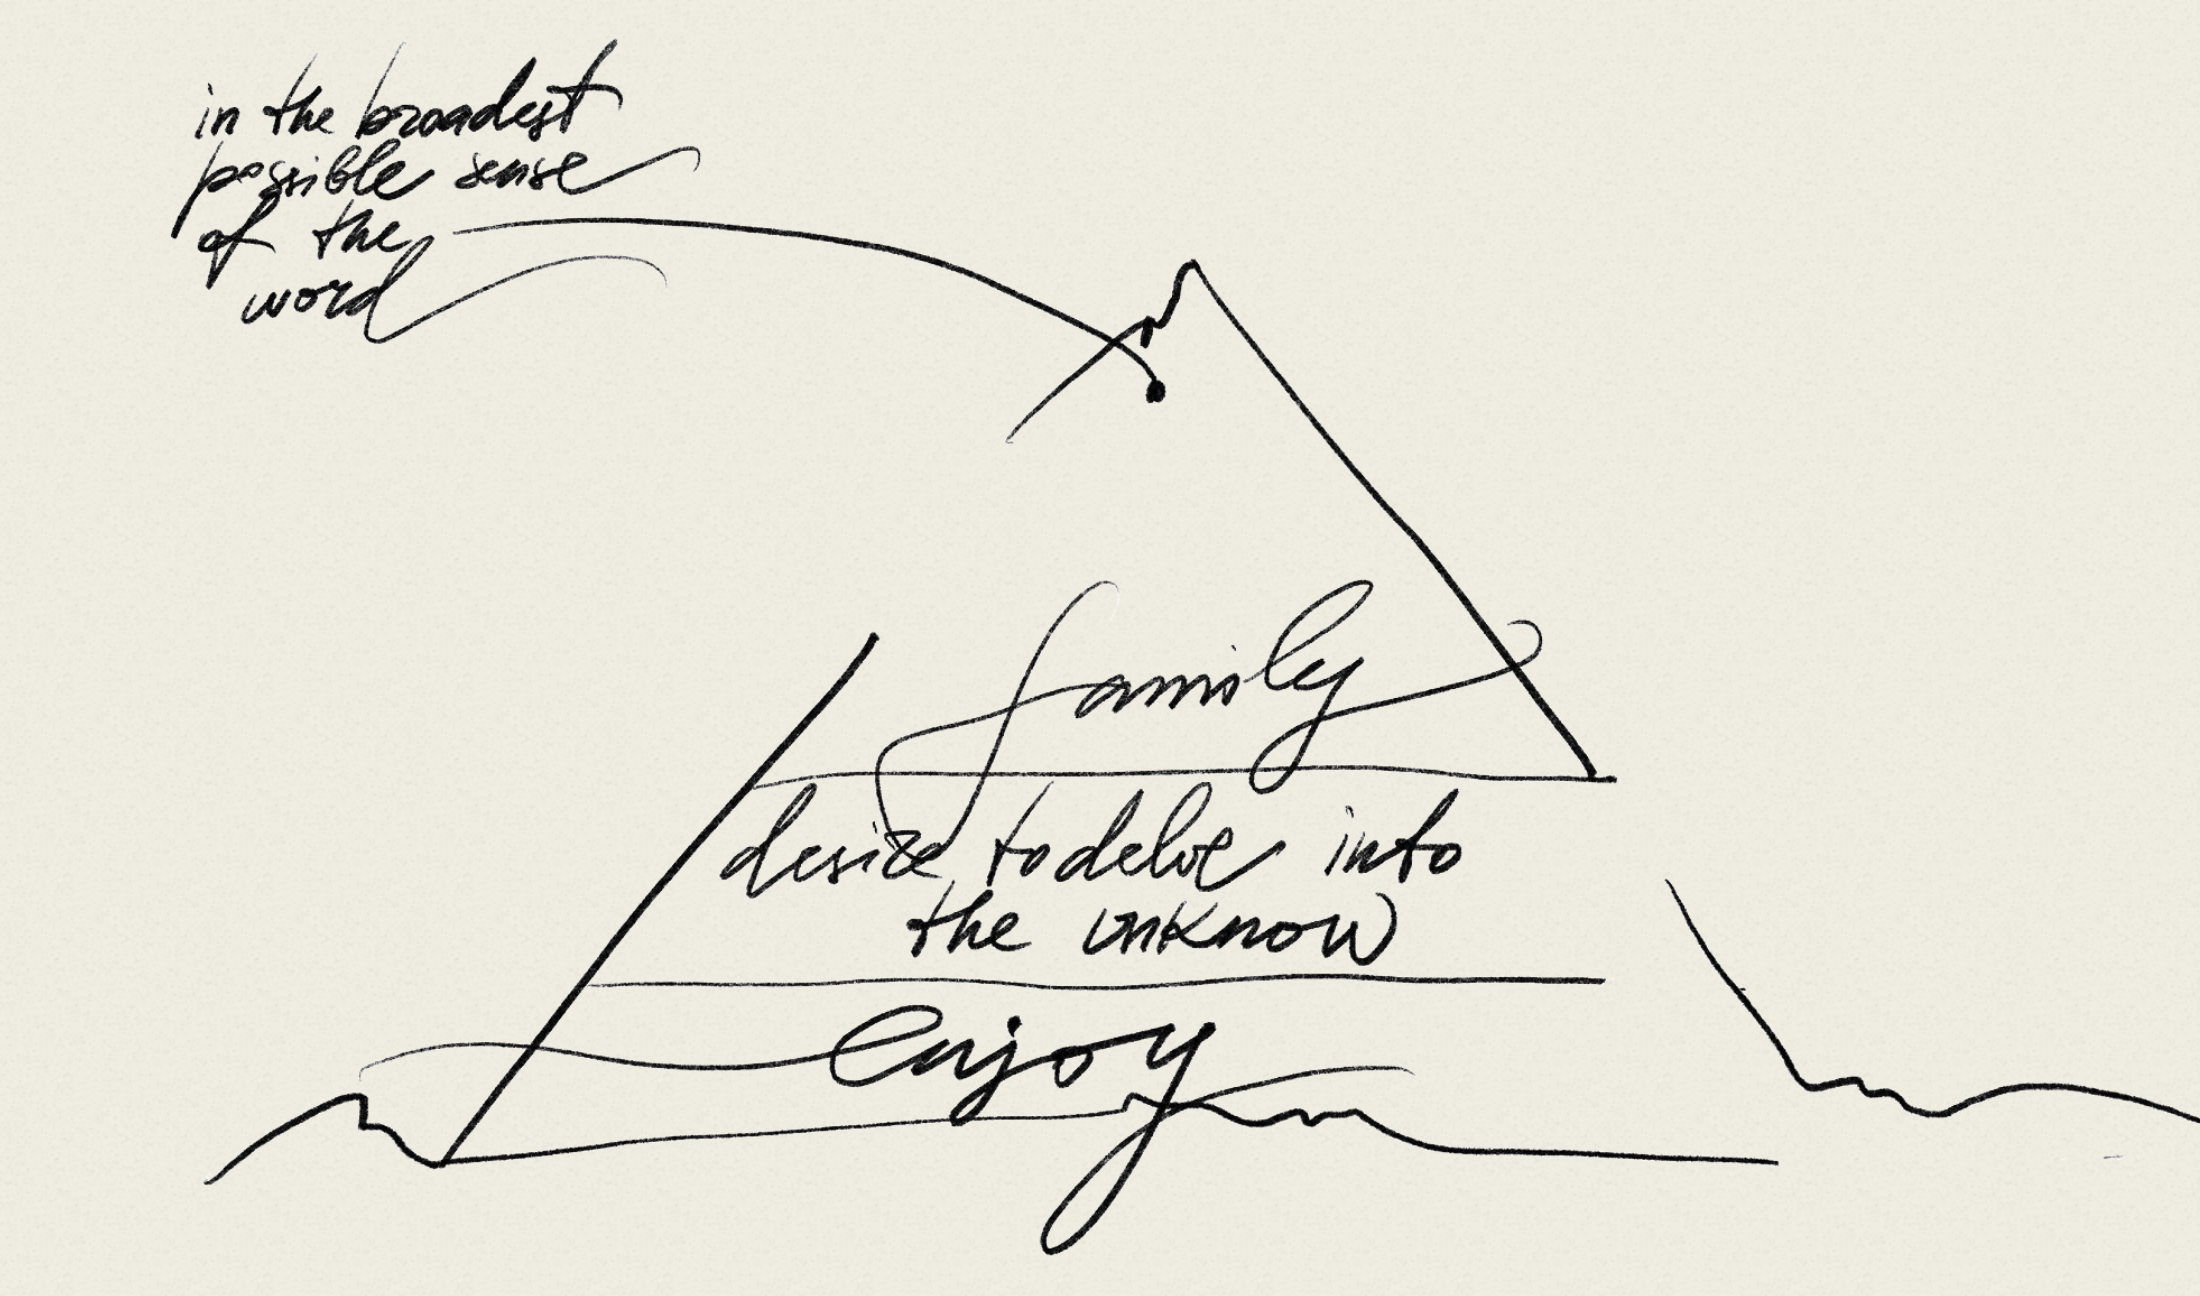 in the broadest
possible sense
of the
word
family
desire to delve into
the unknow
enjoy